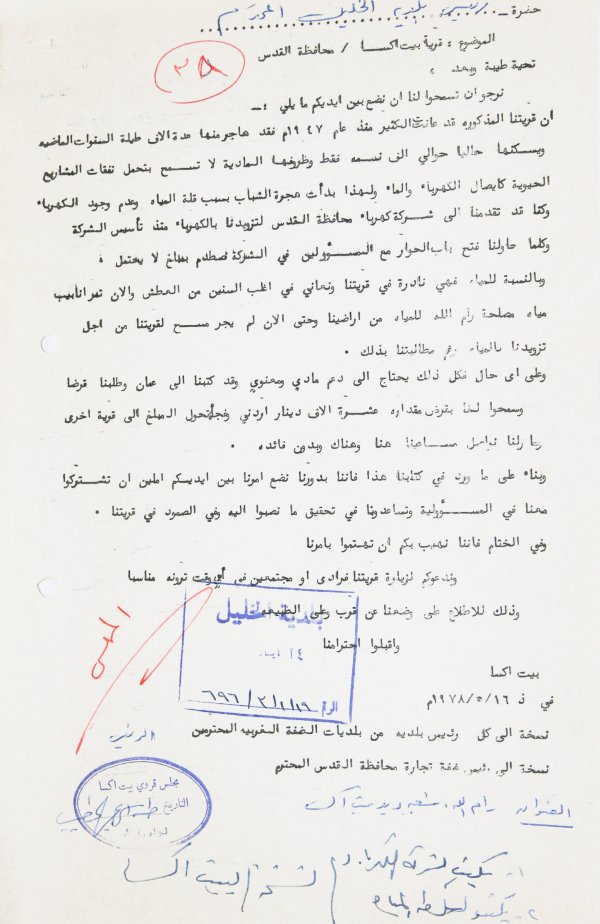 حضرة رئيس بلدية الخليل المحترم
الموضوع : قرية بيت اكسا / محافظة القدس
تحية طيبة وبعد ،
٣٨
نرجو ان تسمحوا لنا ان نضع بين ايديكم ما يلي :-
ان قريتنا المذكوره قد عانت الكثير منذ عام ١٩٤٧م فقد هاجر منها عدة الاف طيلة السنوات الماضيه
ويسكنها حاليا حوالي الف نسمه فقط وظروفها المادية لا تسمح بتحمل نفقات المشاريع
الحيوية كايصال الكهرباء والماء ولهذا بدأت هجرة الشباب بسبب قلة المياه وعدم وجود الكهرباء
وكنا قد تقدمنا الى شركة كهرباء محافظة القدس لتزويدنا بالكهرباء منذ تأسيس الشركة
وكلما حاولنا فتح باب الحوار مع المسؤولين في الشركة نصطدم بمبلغ لا يحتمل ،
وبالنسبة للمياه فهي نادرة في قريتنا ونعاني في اغلب السنين من العطش والان تمر انابيب
مياه مصلحة رام الله للمياه من اراضينا وحتى الان لم يجر مسح لقريتنا من اجل
تزويدنا بالمياه رغم مطالبتنا بذلك .
وعلى اى حال فكل ذلك يحتاج الى دعم مادي ومعنوي وقد كتبنا الى عمان وطلبنا قرضا
وسمحوا لنا بقرض مقداره عشرة الاف دينار اردني وفجأة تحول المبلغ الى قرية اخرى
وما زلنا نواصل مساعينا هنا وهناك وبدون فائده .
وبناء على ما ورد في كتابنا هذا فاننا بدورنا نضع امرنا بين ايديكم املين ان تشتركوا
معنا في المسؤولية وتساعدونا في تحقيق ما نصبوا اليه وفي الصمود في قريتنا .
وفي الختام فاننا نهيب بكم ان تهتموا بامرنا
وندعوكم لزيارة قريتنا فرادى او مجتمعين في أي وقت ترونه مناسبا
وذلك للاطلاع على وضعنا عن قرب وعلى الطبيعه
واقبلوا احترامنا
بلدية الخليل
١٤ ايار
الرقم ٦٩٦/٢/١/١٩
بيت اكسا
في ذ ١٩٧٨/٥/١٦م
نسخة الى كل رئيس بلديه من بلديات الضفة الغربيه المحترمين
نسخة الى رئيس غرفة تجارة محافظة القدس المحترم
الرئيس
مجلس قروي بيت اكسا
التاريخ
العنوان رام الله
١- يكتب لشركة الكهرباء
نسخة لبيت اكسا
٢- يكتب لسلطة المياه